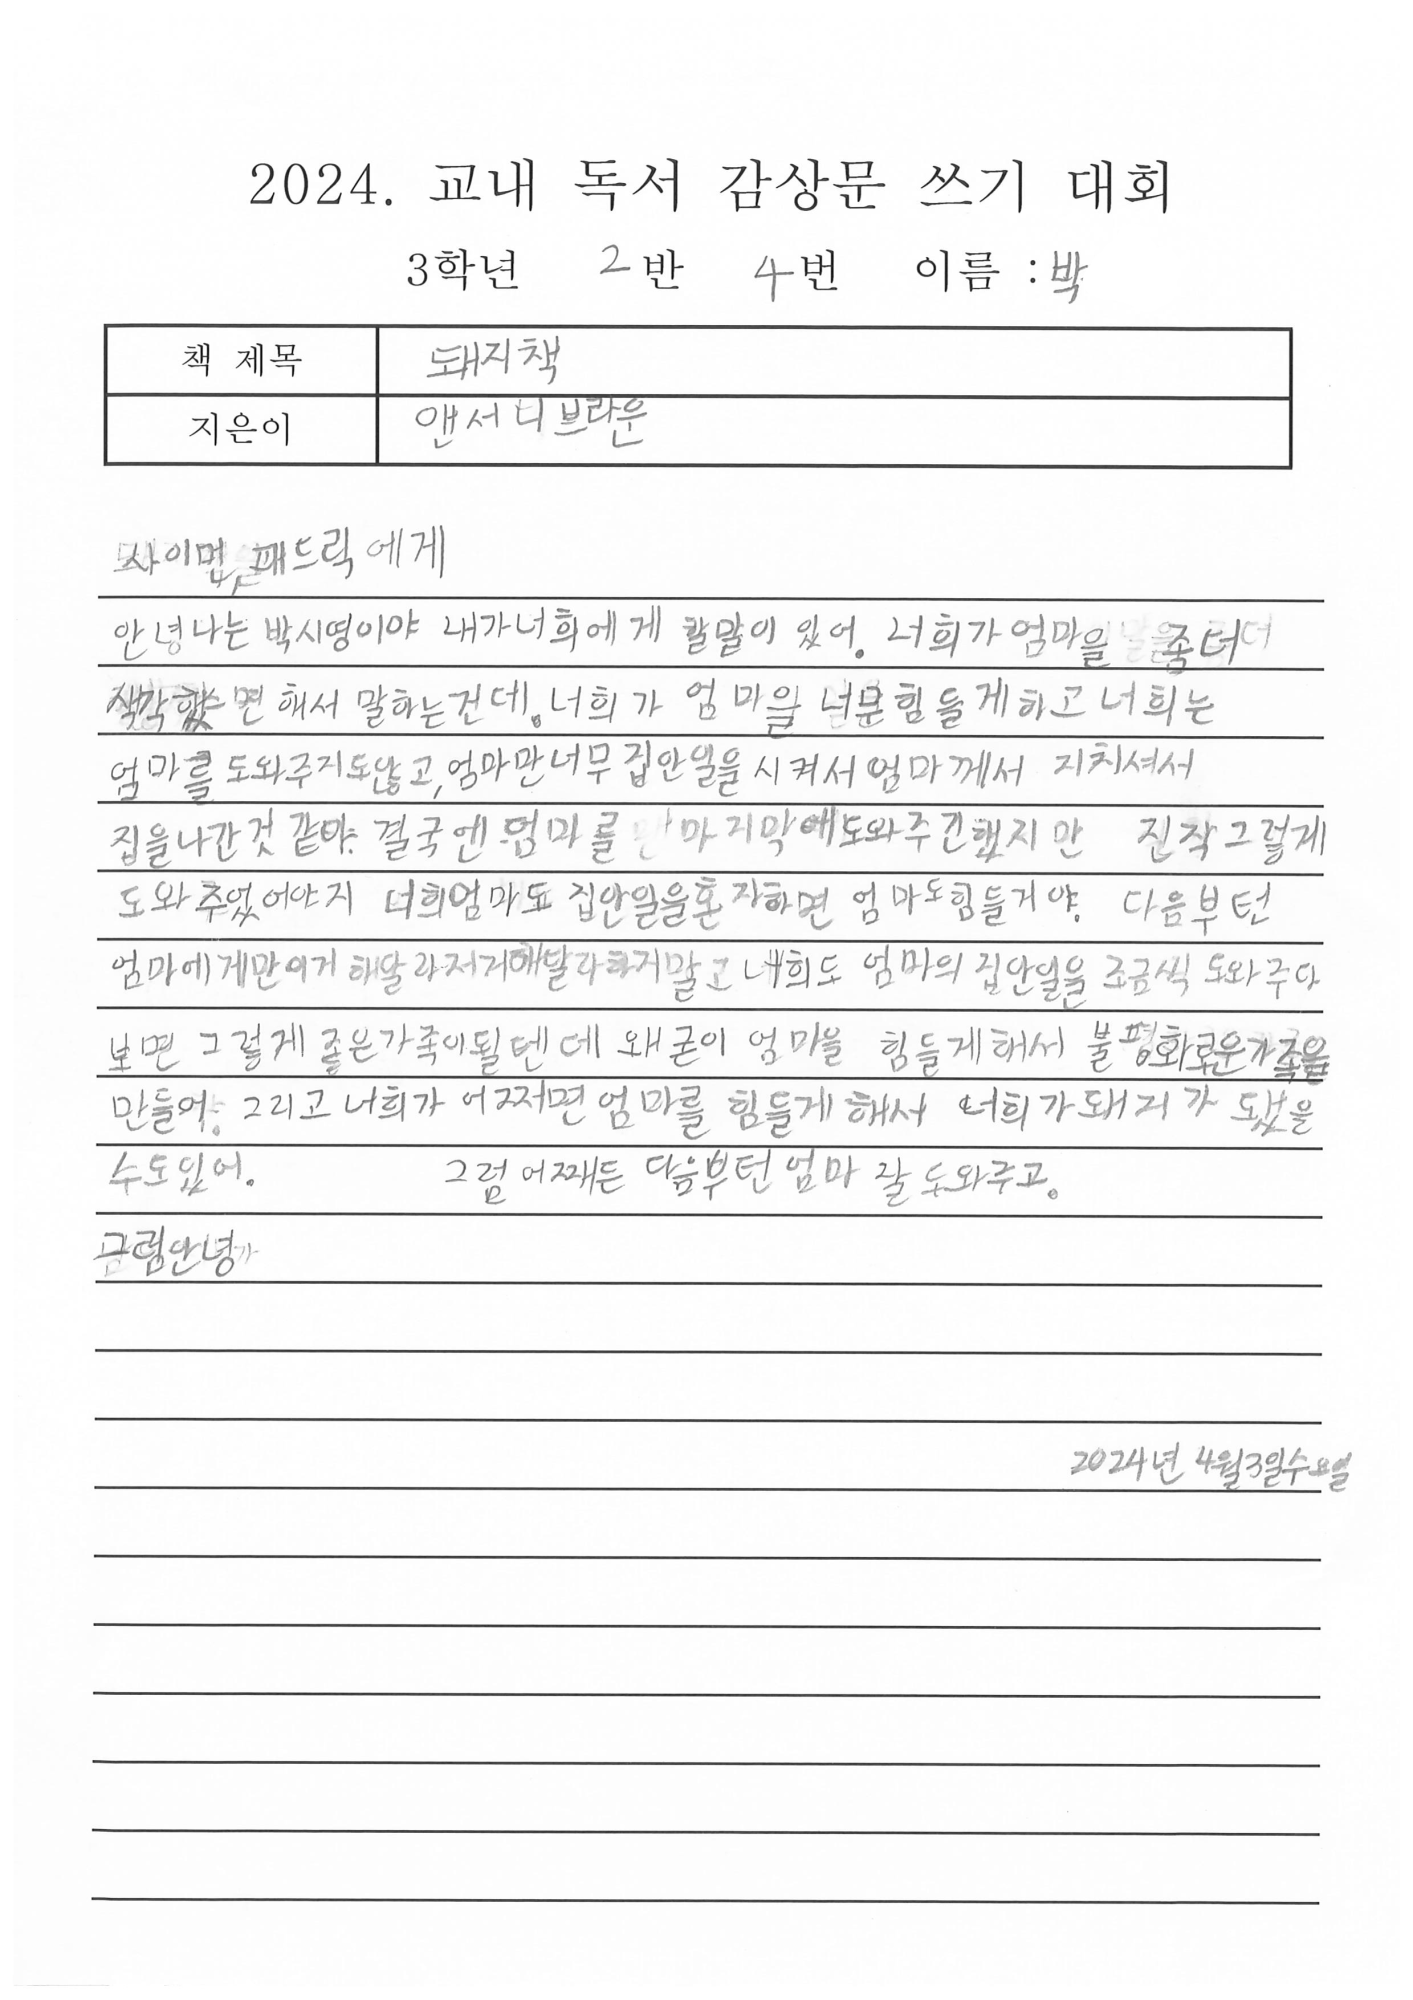 2024. 교내 독서 감상문 쓰기 대회
3학년 2반 4번 이름 : 박
책 제목 돼지책
지은이 앤서니브라운
사이먼, 패트릭에게
안녕나는 박시영이야 내가너희에게 할말이 있어. 너희가엄마을 좀더
생각했으면 해서 말하는건데. 너희가 엄마을 너무힘들게하고 너희는
엄마를 도와주지도않고, 엄마만너무 집안일을 시켜서 엄마께서 지치셔서
집을나간것 같아. 결국엔 엄마를 마지막에도와주긴했지만 진작그렇게
도와주었어야지 너희엄마도 집안일을혼자하면 엄마도힘들거야. 다음부턴
엄마에게만이거해달라저거해달라하지말고 너희도 엄마의 집안일을 조금씩 도와주다
보면 그렇게 좋은가족이될텐데 왜굳이 엄마을 힘들게해서 불평화로운가족을
만들어. 그리고 너희가 어쩌면엄마를 힘들게해서 너희가돼지가 됐을
수도있어. 그럼어쨰든 다음부턴엄마 잘 도와주고.
그럼안녕
2024년 4월3일수요일